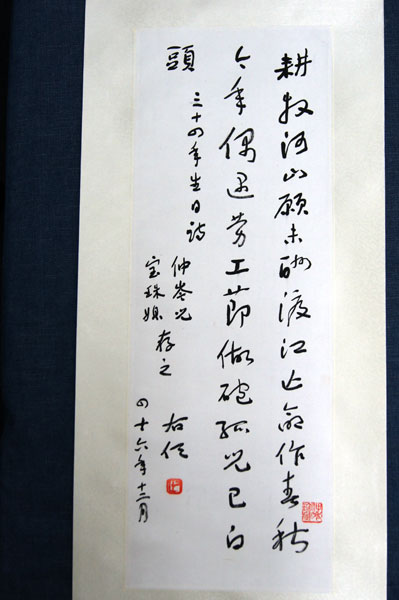 耕牧河山願未酬渡江亡命作春秋
今年偶遇勞工節做砲孤兒已白
頭
三十四年生日詩
仲岑兒
宝珠媳
存之
右任
四十六年十二月